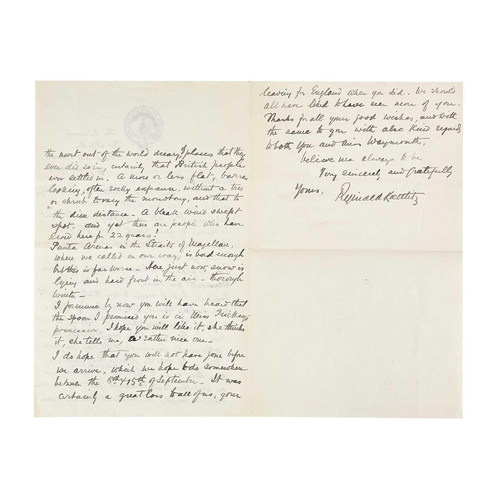 the most out of the world dreary places that they
ever did, or certainly that British people
ever settled in. A more or less flat, barren
looking, often rocky expanse, without a tree
or shrub to vary the monotony, and that to
the dim distance - A bleak wind swept
spot. and yet there are people who have
lived here for 22 years!
Punta Arenas in the Straits of Magellan,
where we called on our way, is bad enough
but this is far worse - Here, just now, snow is
lying and hard frost in the air - thorough
winter -
I presume by now you will have heard that
the spoon I promised you is in Miss
possession. I hope you will like it, she thinks
it, she tells me, a rather nice one -
I do hope that you will not have gone before
we arrive, which we hope to do somewhere
between the 5th & 15th of September - It was
certainly a great loss to all of us, your
leaving for England when you did. We should
all have liked to have seen more of you.
Thanks for all your good wishes, and with
the same to you with also kind regards
to both you and Miss Waymouth,
believe me always to be
Very sincerely and gratefully
Yours, Reginald Koettlitz